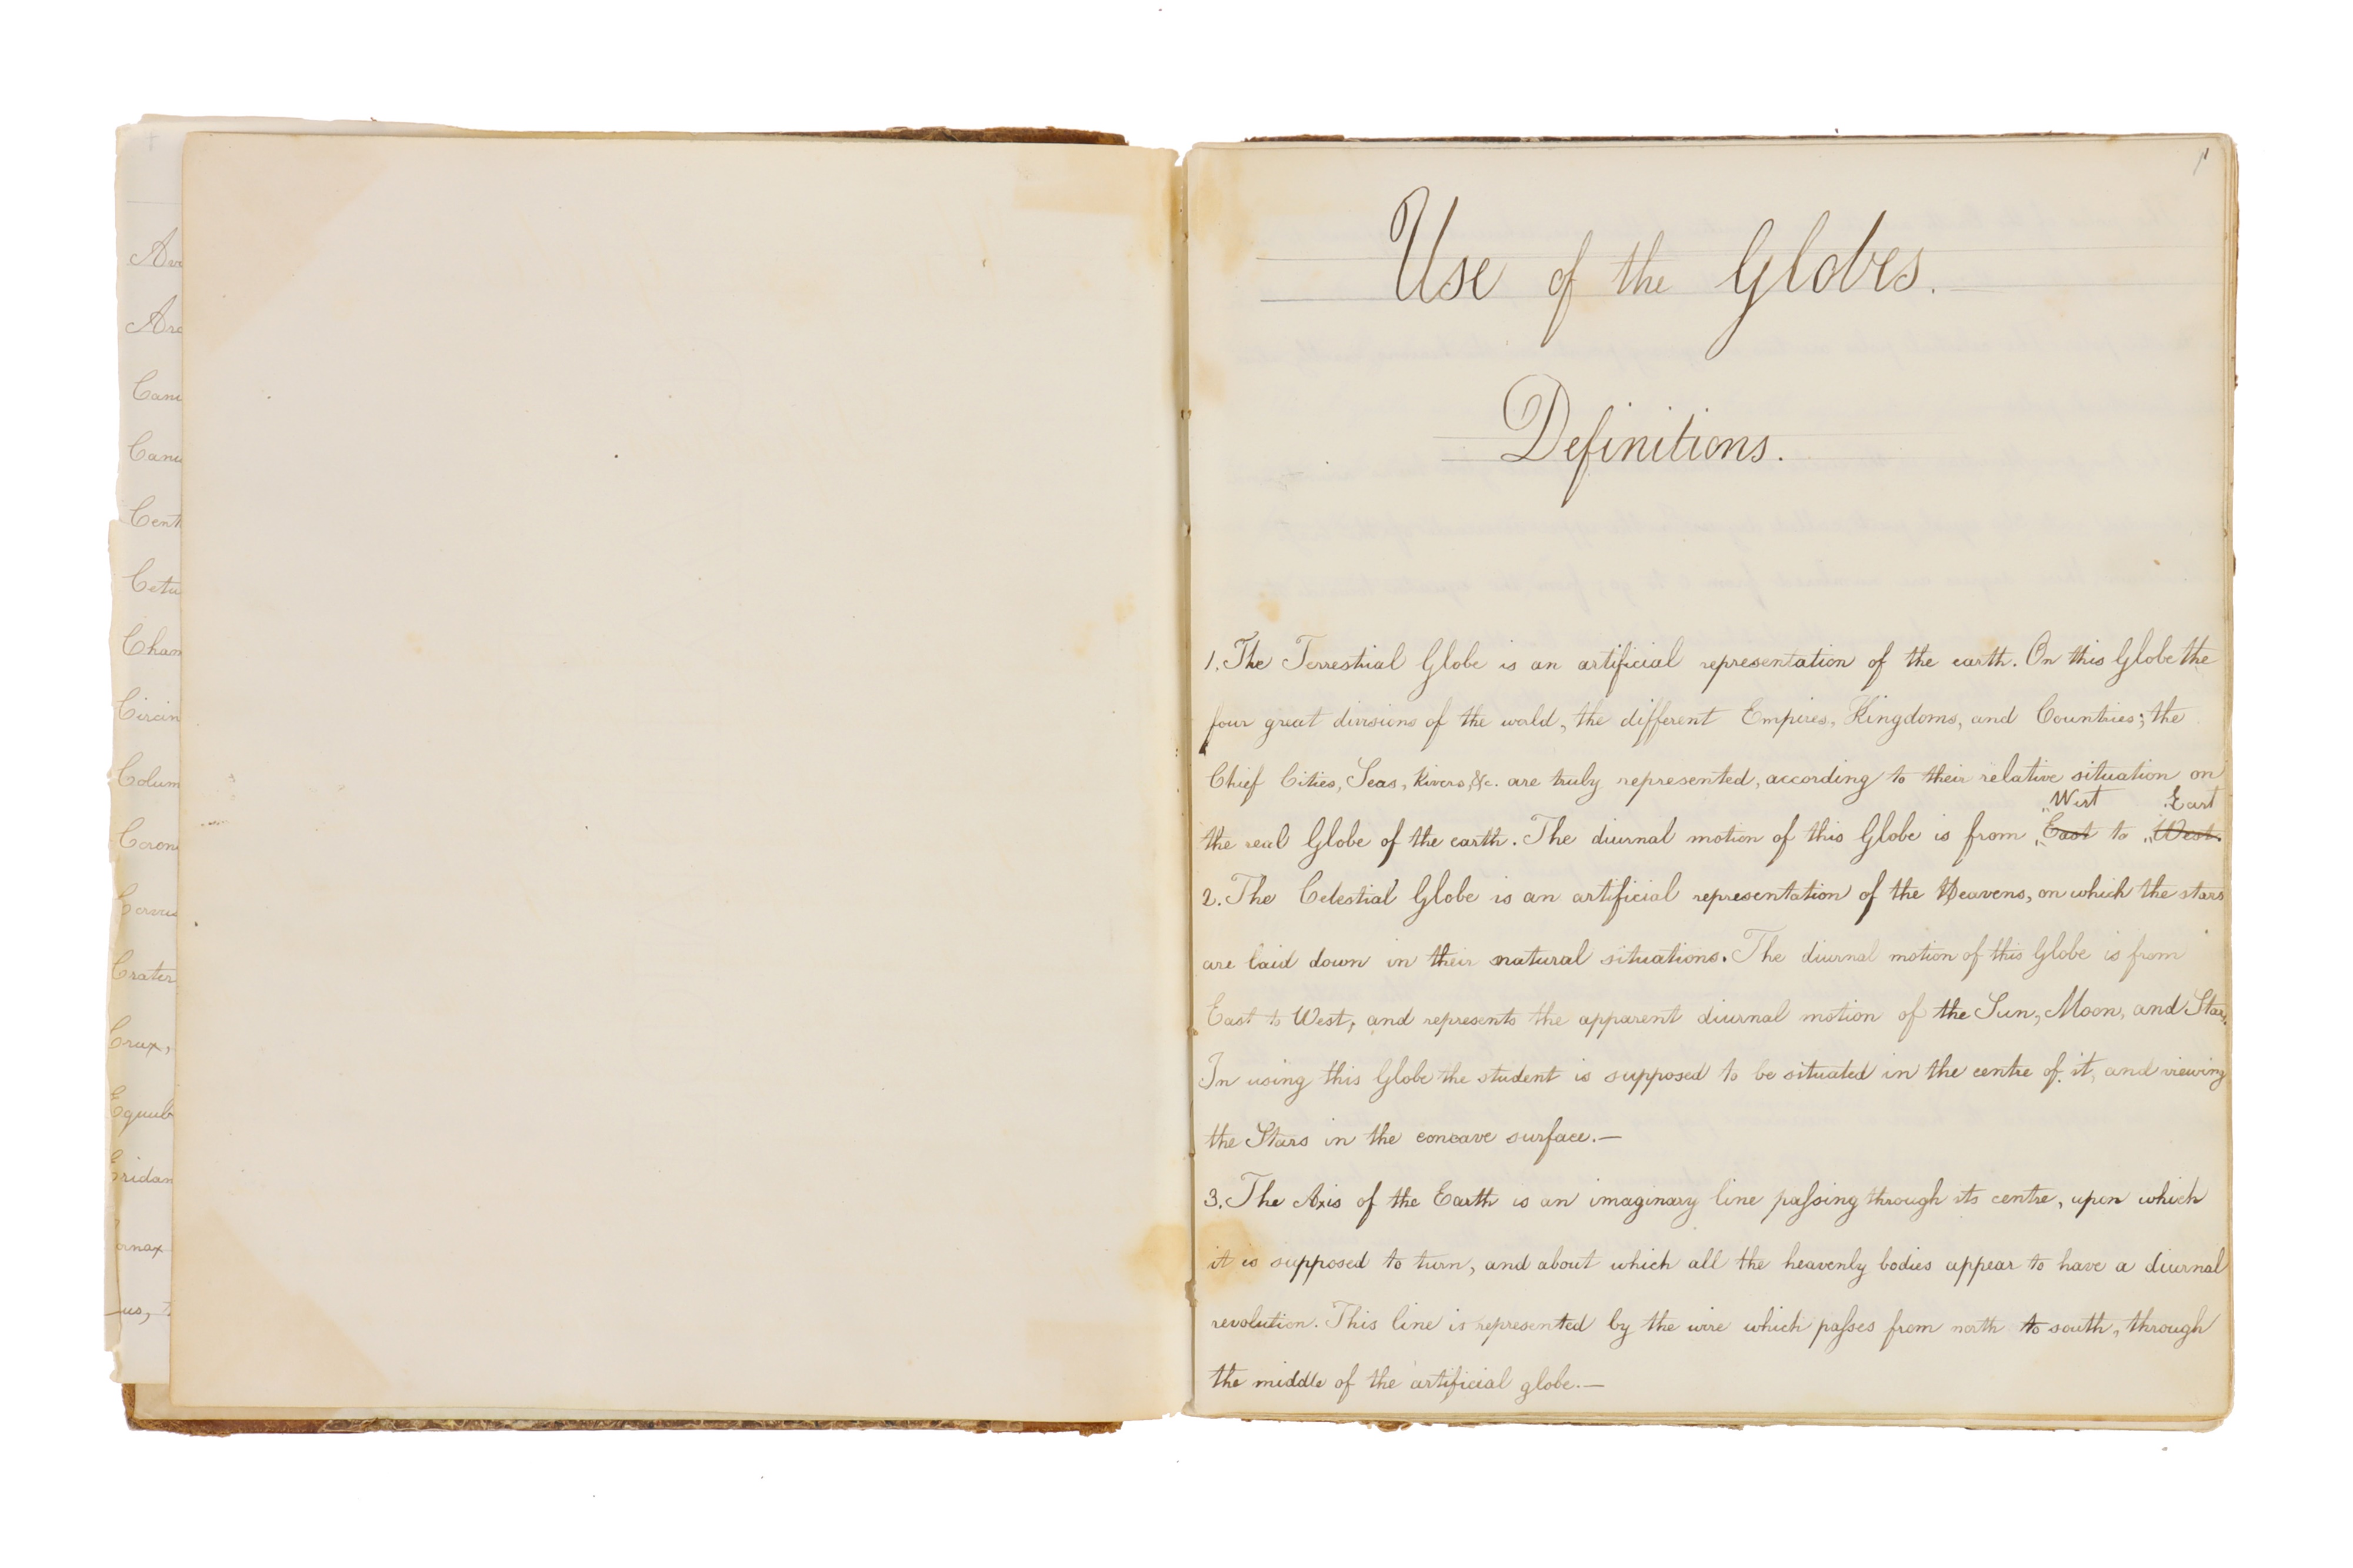 Ara
Cani
Cani
Cent
Cetu
Cham
Circin
Colum
Coron
Corvus
Crater
Crux,
Equul
Eridan
ornax
us, t
1
Use of the Globes.
Definitions.
1. The Terrestrial Globe is an artificial representation of the earth. On this Globe the
four great divisions of the world, the different Empires, Kingdoms, and Countries; the
Chief Cities, Seas, Rivers, &c. are truly represented, according to their relative situation on
West East
the real Globe of the earth. The diurnal motion of this Globe is from East to West.
2. The Celestial Globe is an artificial representation of the Heavens, on which the stars
are laid down in their natural situations. The diurnal motion of this Globe is from
East to West, and represents the apparent diurnal motion of the Sun, Moon, and Stars.
In using this Globe the student is supposed to be situated in the centre of it, and viewing
the Stars in the concave surface.—
3. The Axis of the Earth is an imaginary line paſsing through its centre, upon which
it is supposed to turn, and about which all the heavenly bodies appear to have a diurnal
revolution. This line is represented by the wire which paſses from north to south, through
the middle of the artificial globe.—